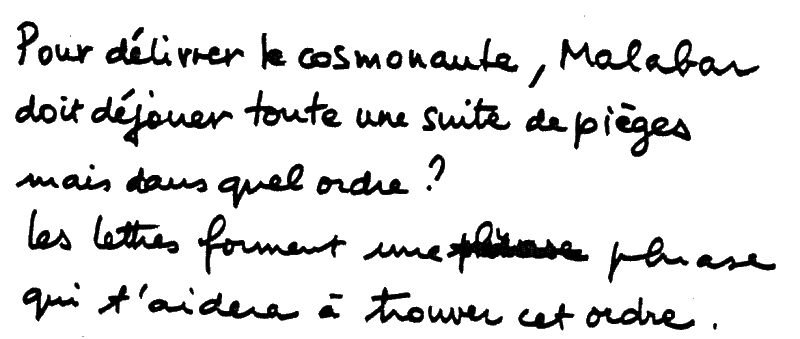 Pour délivrer le cosmonaute, Malabar
doit déjouer toute une suite de pièges
mais dans quel ordre ?
Les lettres forment une phrase
qui t'aidera à trouver cet ordre.